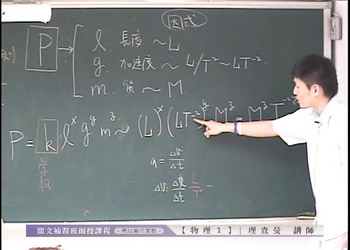 因式
P
l. 長度 ~ L
g. 加速度 ~ L/T² ~ LT⁻²
m. 質 ~ M
P = k l^x g^y m^z ~ (L)^x (LT⁻²)^y M^z = M^z T⁻²
常數
a = Δv/Δt
Δv = Δx/Δt
鼎文補習班函授課程
【物理1】 理查曼 講師